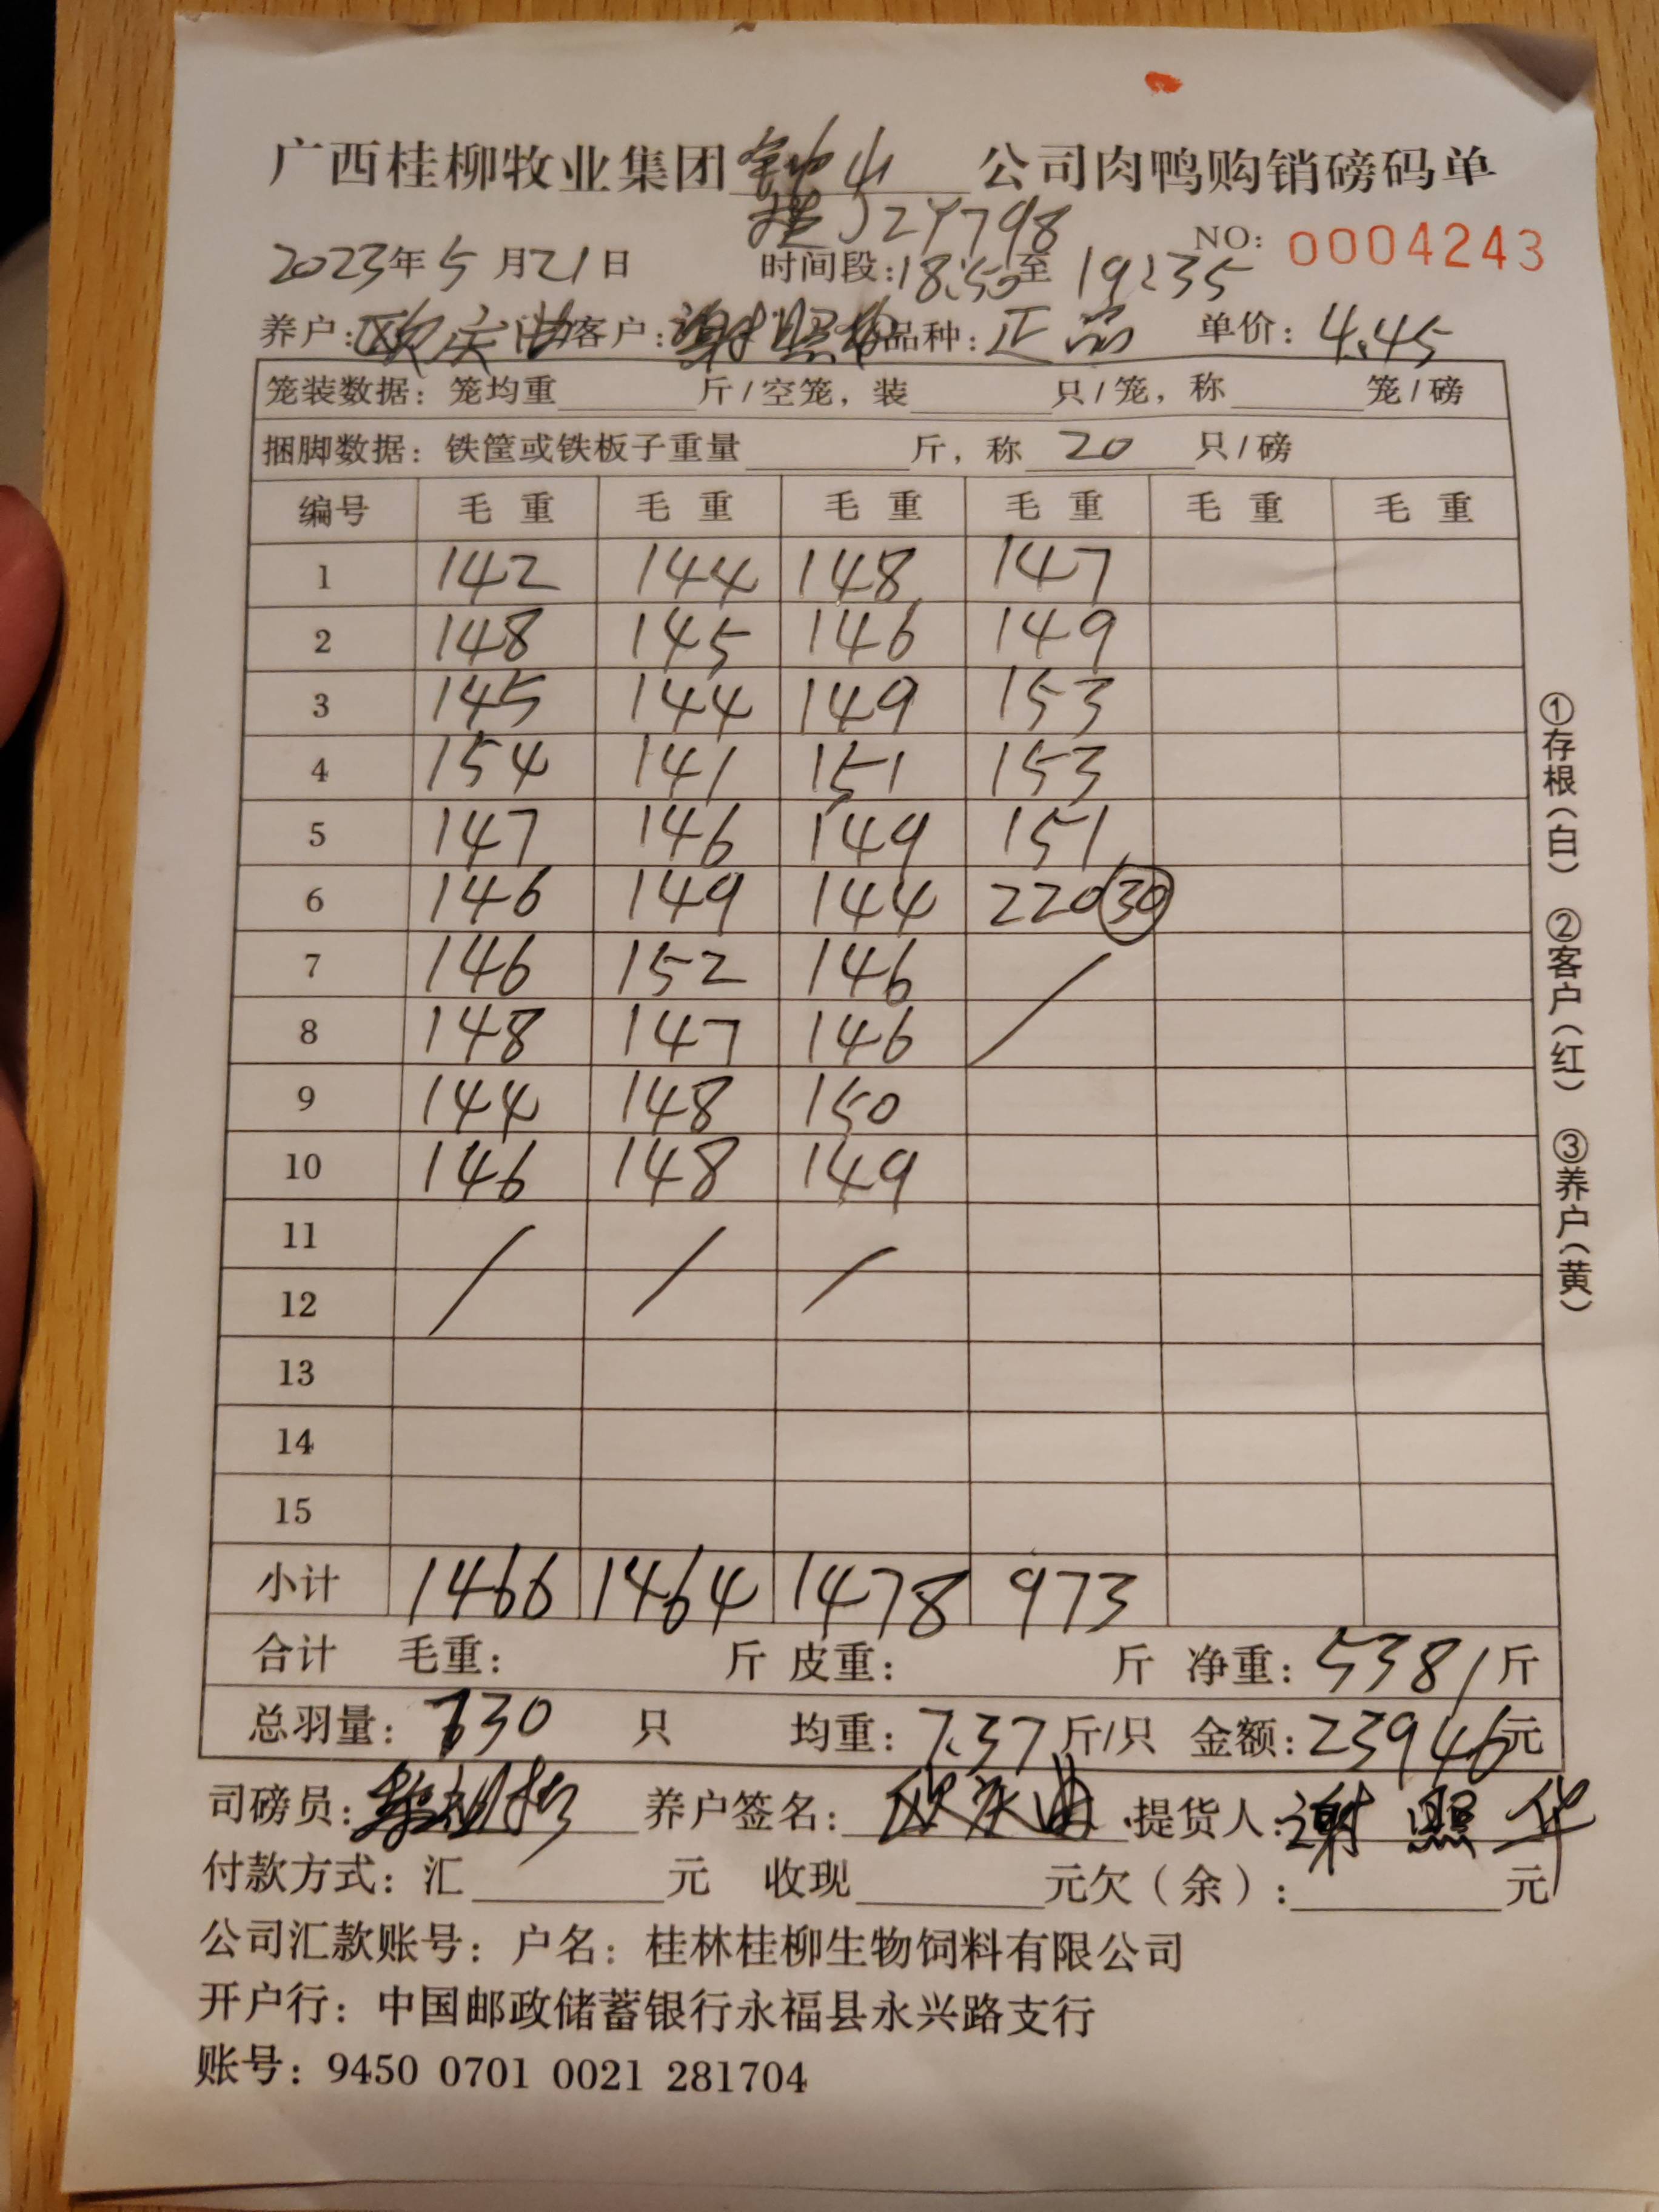 广西桂柳牧业集团 钟山 公司肉鸭购销磅码单
桂J2Y798
NO: 0004243
2023年5月21日 时间段:18:50至19:35
养户:欧庆 客户:谢照华 品种:正品 单价:4.45
笼装数据: 笼均重 斤/空笼, 装 只/笼, 称 笼/磅
捆脚数据: 铁筐或铁板子重量 斤, 称 20 只/磅
编号 毛重 毛重 毛重 毛重 毛重 毛重
1 142 144 148 147
2 148 145 146 149
3 145 144 149 153
4 154 141 151 153
5 147 146 149 151
6 146 149 144 220 30
7 146 152 146 /
8 148 147 146
9 144 148 150
10 146 148 149
11 / / /
12
13
14
15
小计 1466 1464 1478 973
合计 毛重: 斤 皮重: 斤 净重: 5381斤
总羽量: 730 只 均重: 7.37斤/只 金额: 23946元
司磅员: 养户签名: 欧庆 提货人: 谢照华
付款方式: 汇 元 收现 元欠(余): 元
公司汇款账号: 户名: 桂林桂柳生物饲料有限公司
开户行: 中国邮政储蓄银行永福县永兴路支行
账号: 9450 0701 0021 281704
①存根(白) ②客户(红) ③养户(黄)